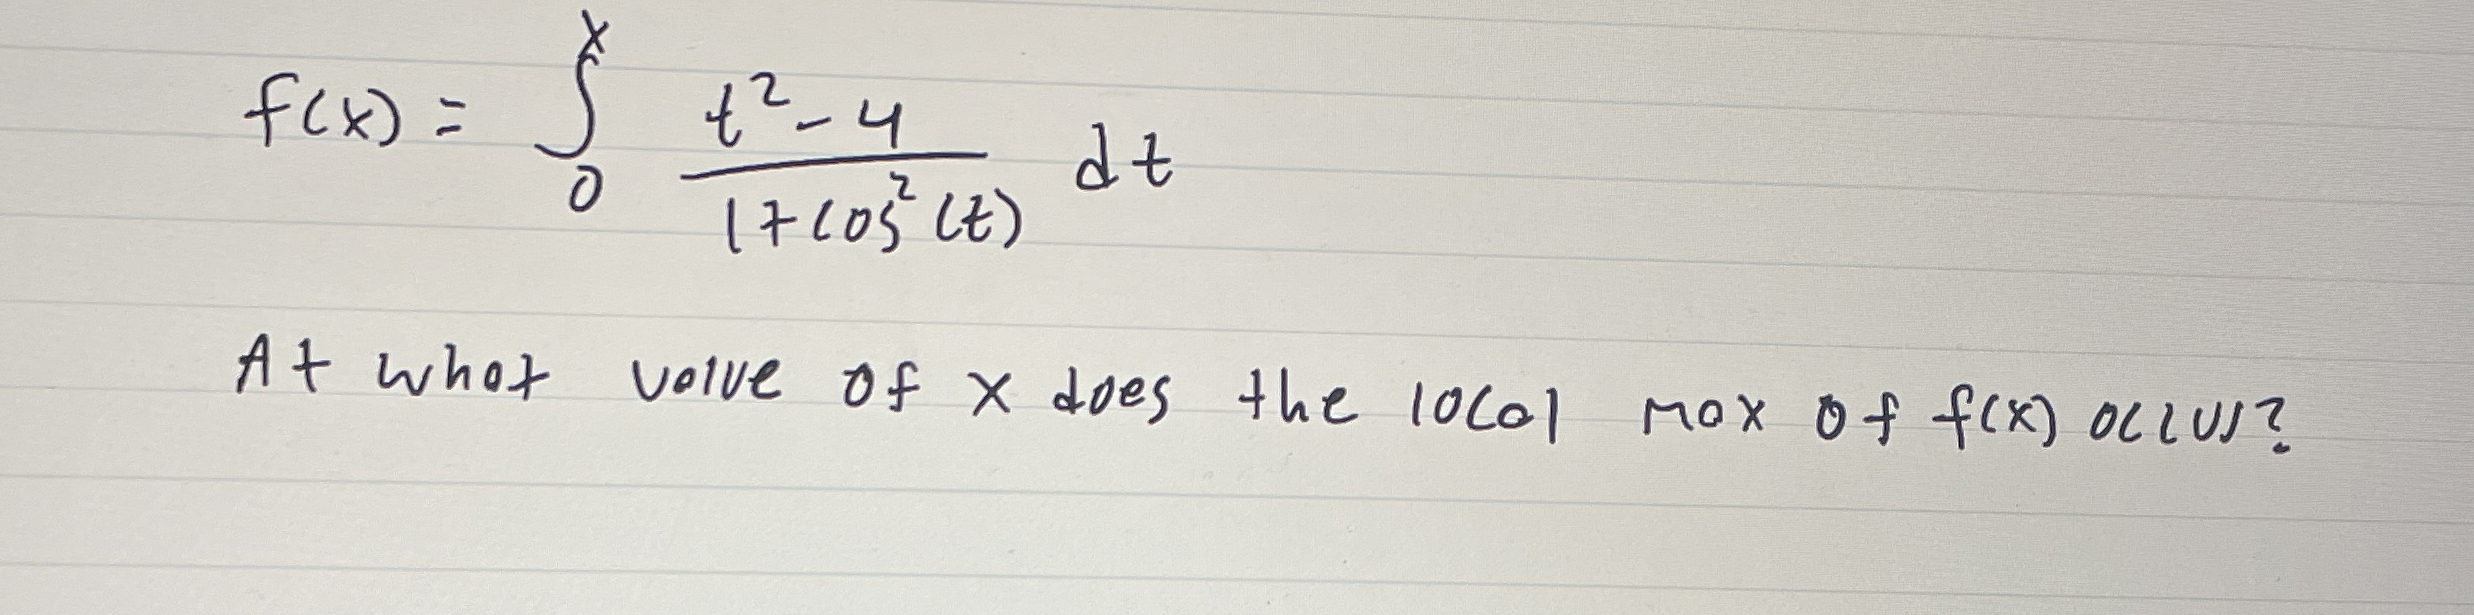 f(x) = ∫₀ˣ (t² - 4)/(1 + cos²(t)) dt
At what value of x does the local max of f(x) occur?